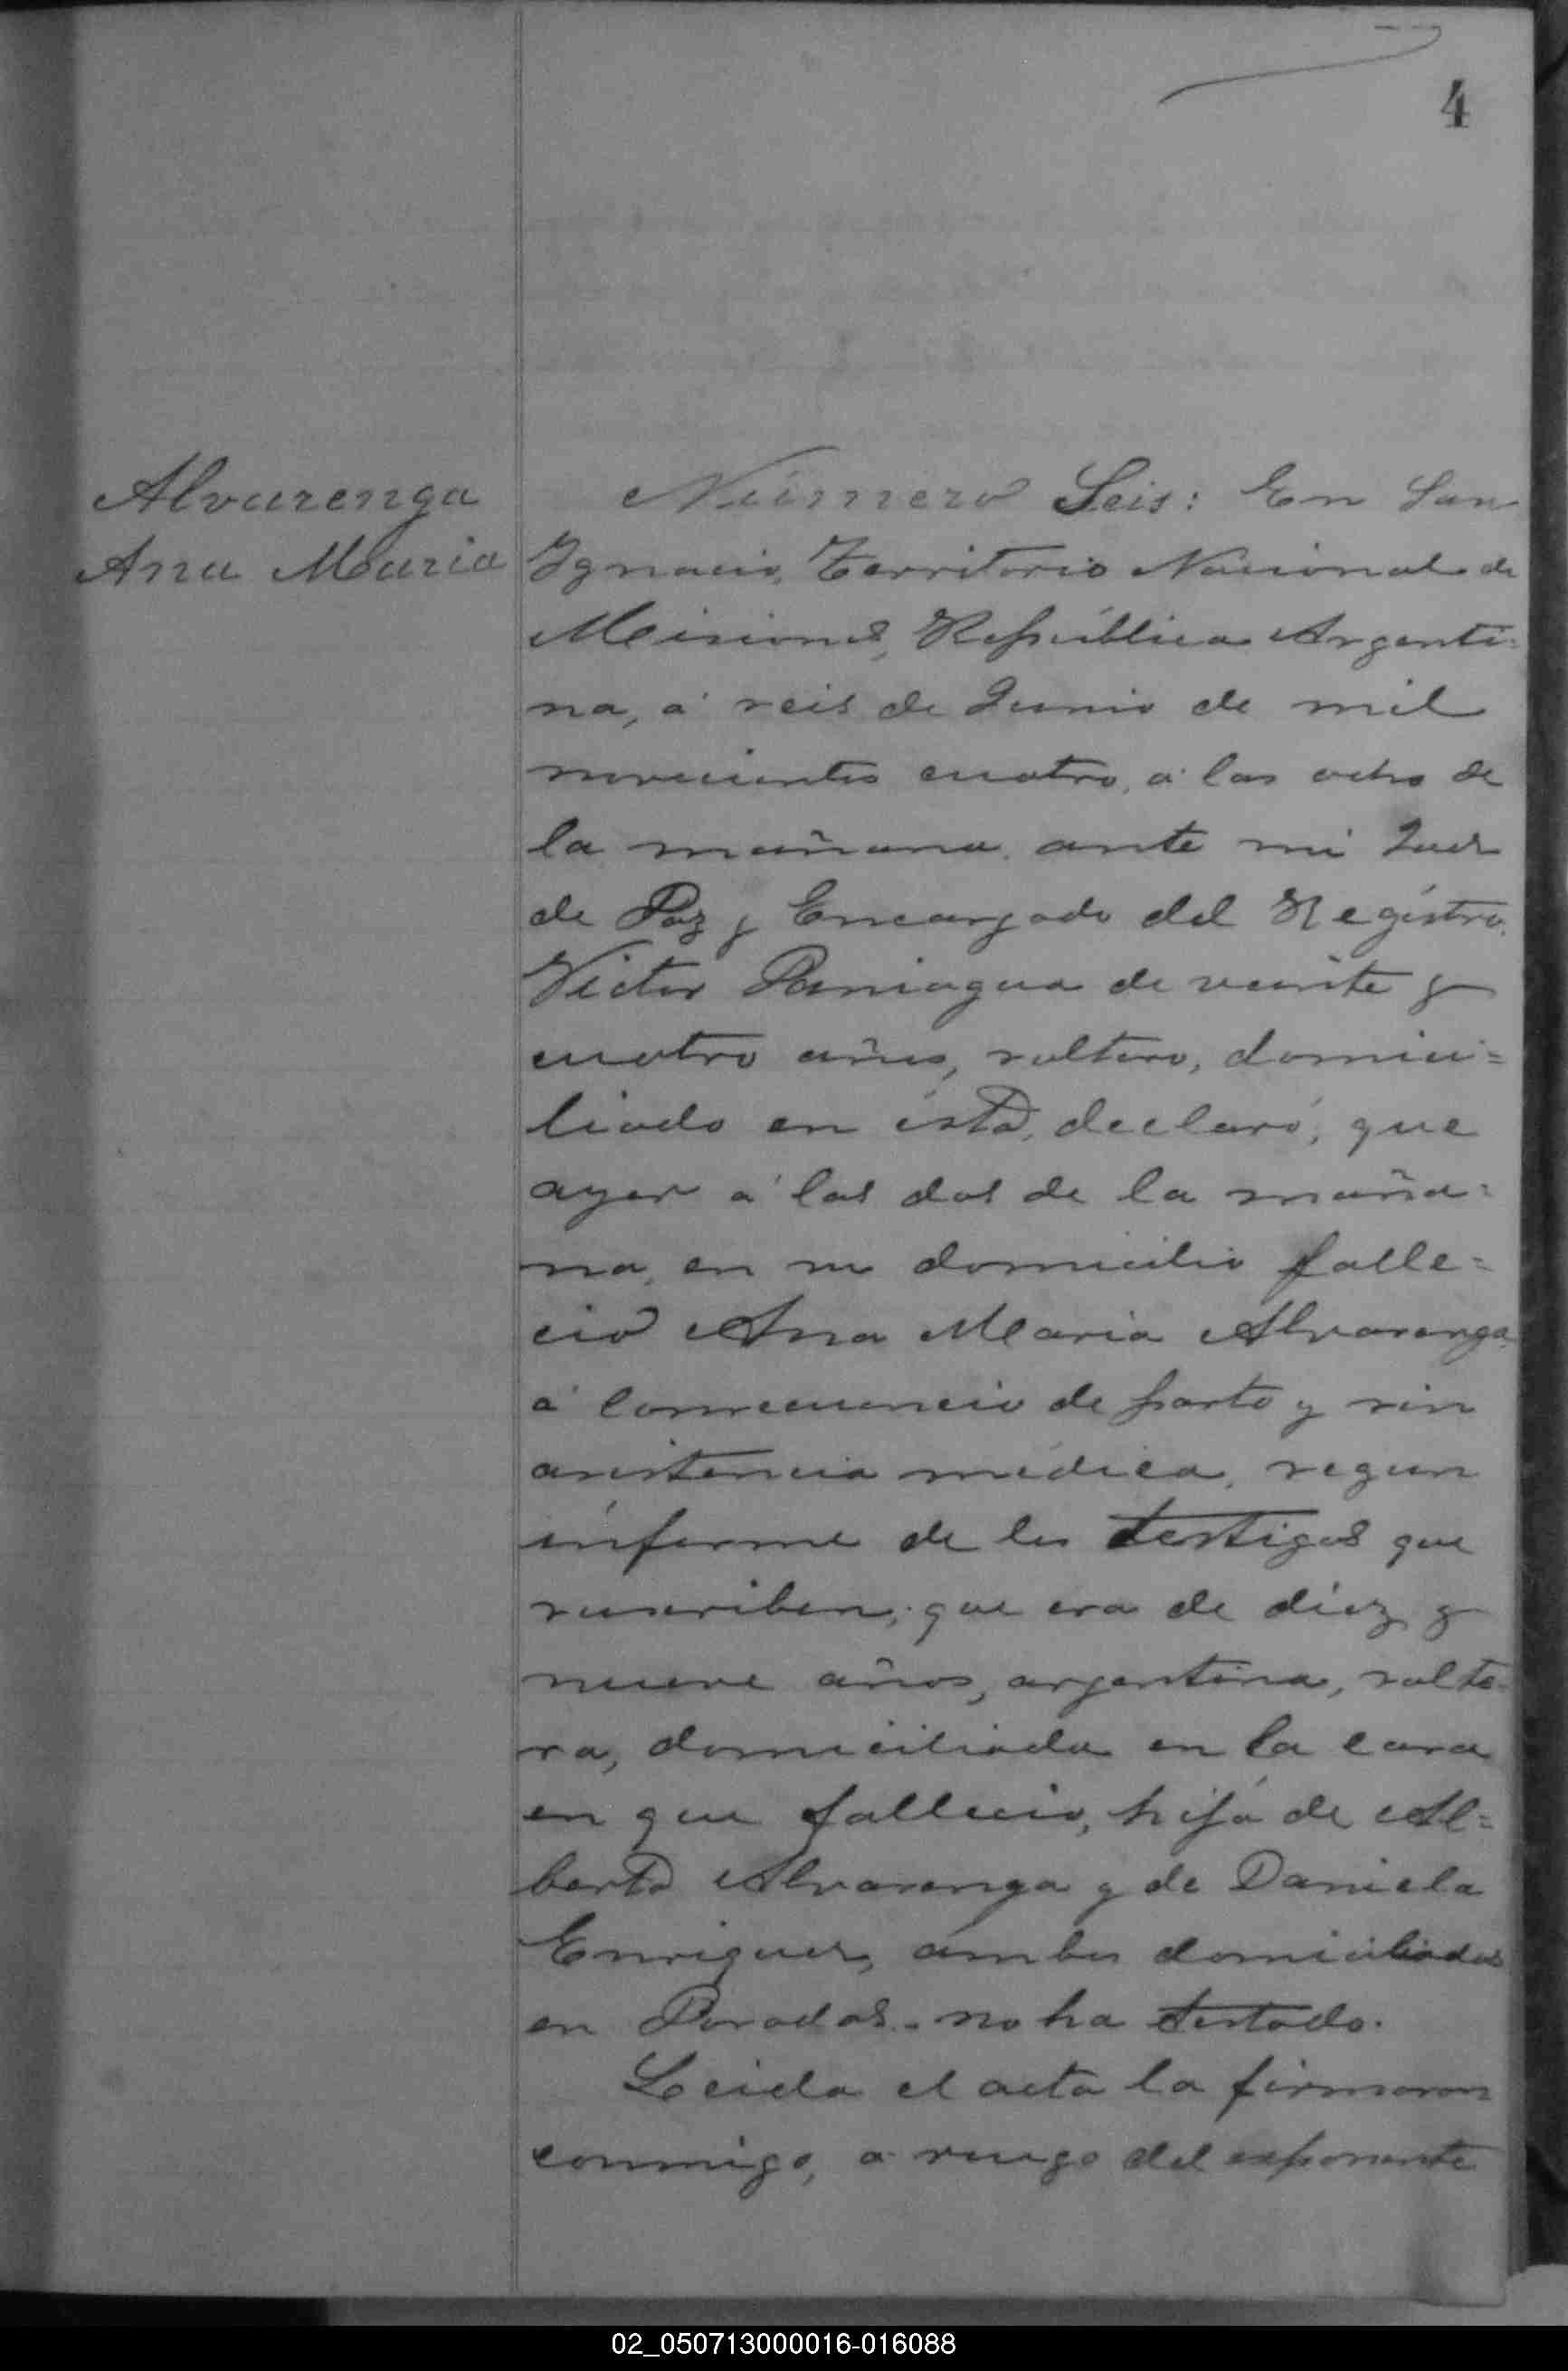 4
Alvarenga
Ana Maria
Número Seis: En San
Ignacio, Territorio Nacional de
Misiones, República Argenti=
na, á seis de Junio de mil
novecientos cuatro, á las ocho de
la mañana, ante mi Juez
de Paz y Encargado del Registro,
Victor Paniagua de veinte y
cuatro años, soltero, domici=
liado en ésta, declaró; que
ayer á las dos de la maña=
na, en su domicilio falle=
ció Ana Maria Alvarenga
á consecuencia de parto y sin
asistencia médica, segun
informe de los testigos que
suscriben; que era de diez y
nueve años, argentina, solte-
ra, domiciliada en la casa
en que falleció, hija de Al=
berto Alvarenga y de Daniela
Enriquez, ambos domiciliados
en Posadas.- no ha testado.
Leida el acta la firmaron
conmigo, a ruego del exponente
02_050713000016-016088